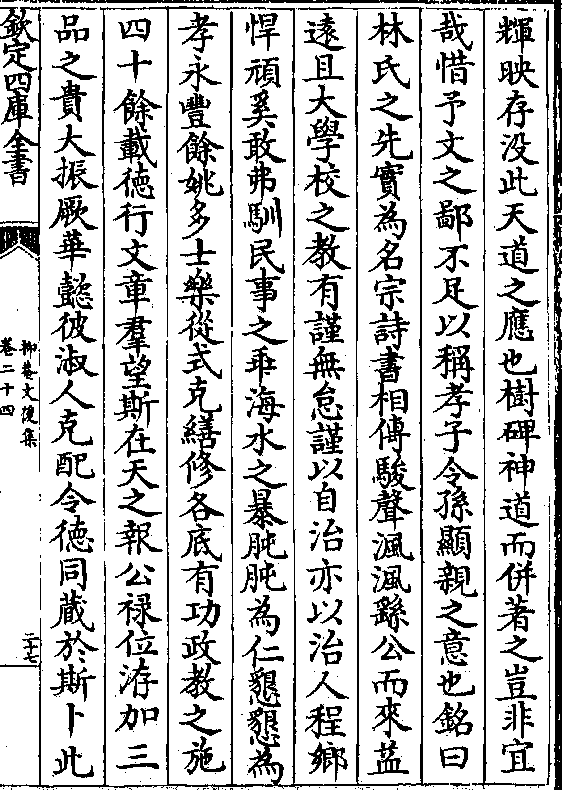 輝映存没此天道之應也樹碑神道而併著之豈非宜
哉惜予文之鄙不足以稱孝子令孫顯親之意也銘曰
林氏之先實為名宗詩書相傳駿聲渢渢繇公而來益
遠且大學校之教有謹無怠謹以自治亦以治人程鄉
悍頑奚敢弗馴民事之乖海水之暴肫肫為仁懇懇為
孝永豐餘姚多士樂從式克繕修各底有功政教之施
四十餘載徳行文章羣望斯在天之報公禄位洊加三
品之貴大振厥華懿彼淑人克配令徳同蔵於斯卜此
欽定四庫全書
抑菴文後集
卷二十四
二十七